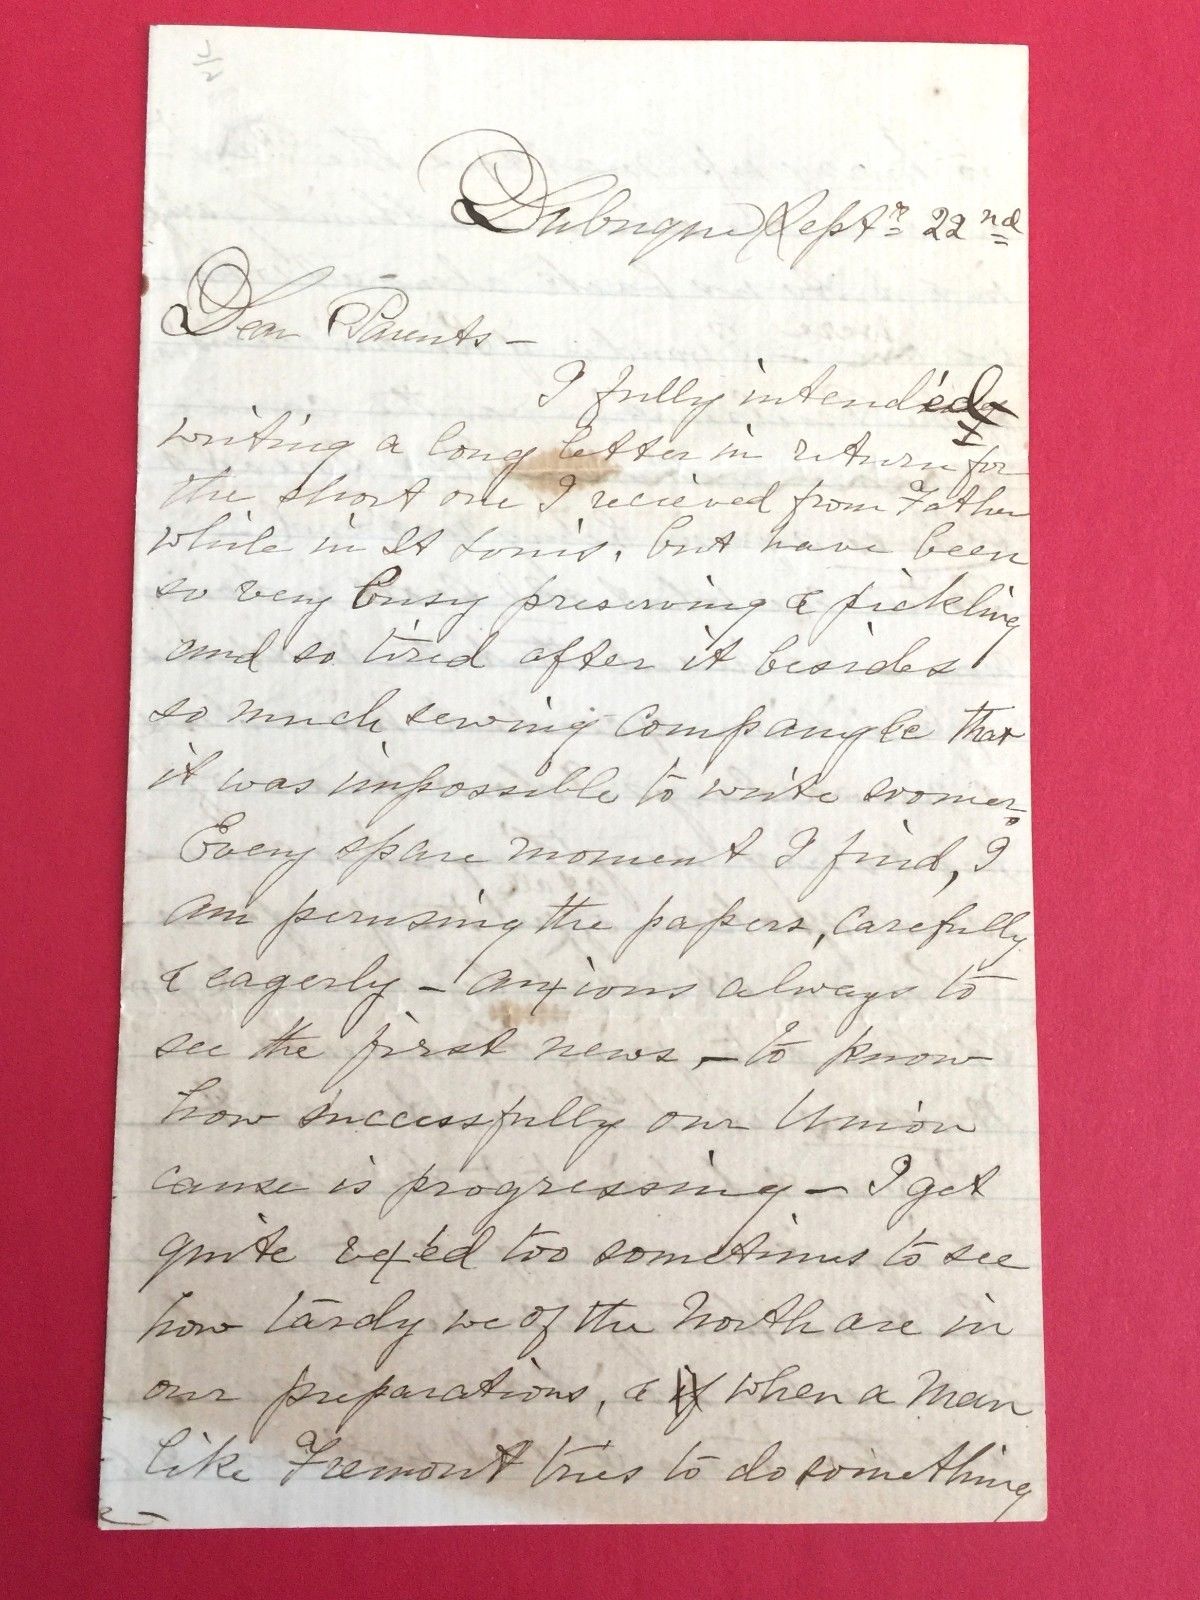 1/2
Dubuque Septr 22nd
Dear Parents -
I fully intended
writing a long letter in return for
the short one I recieved from Father
while in St Louis, but have been
so very busy preserving & pickling
and so tired after it besides
so much sewing &
it was impossible to write sooner.
Every spare moment I find, I
am perusing the papers, carefully
& eagerly - anxious always to
see the first news, - to know
how successfully our Union
cause is progressing - I get
quite vex'ed too sometimes to see
how tardy we of the North are in
our preparations, & if when a man
like Fremont tries to do something